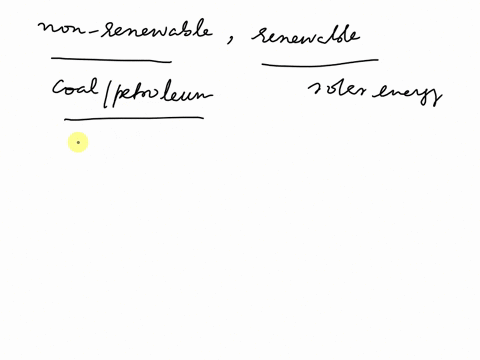 non-renewable, renewable
coal/petroleum solar energy